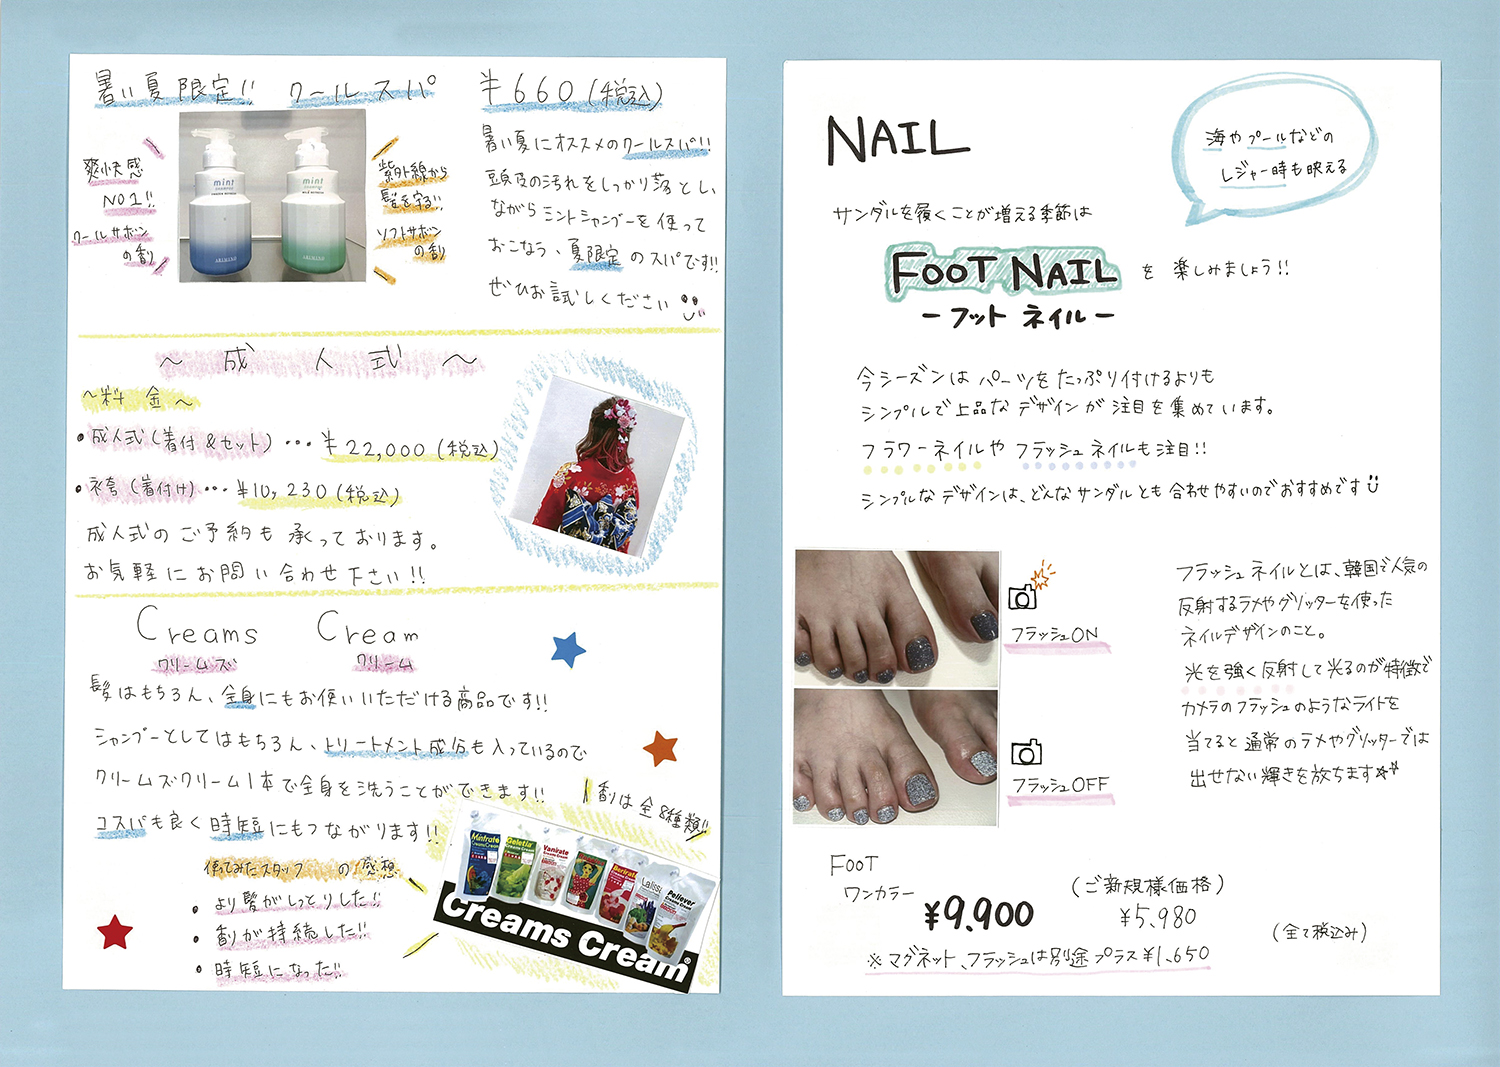 暑い夏限定!! クールスパ ¥660(税込)
爽快感
NO1!!
クールサボン
の香り
mint
SHAMPOO
ARIMINO
mint
SHAMPOO
ARIMINO
紫外線から
髪を守る!!
ソフトサボン
の香り
暑い夏にオススメのクールスパ!!
頭皮の汚れをしっかり落とし、
ながらミントシャンプーを使って
おこなう、夏限定のスパです!!
ぜひお試しください
~成人式~
~料金~
・成人式(着付&セット)…¥22,000(税込)
・袴(着付け)…¥10,230(税込)
成人式のご予約も承っております。
お気軽にお問い合わせ下さい!!
Creams Cream
クリームズ クリーム
髪はもちろん、全身にもお使いいただける商品です!!
シャンプーとしてはもちろん、トリートメント成分も入っているので
クリームズクリーム1本で全身を洗うことができます!!
コスパも良く時短にもつながります!!
香りは全8種類!!
使ってみたスタッフの感想
・より髪がしっとりした!!
・香りが持続した!!
・時短になった!!
Mintrate
Geletta
Vanirate
Berirate
Lalissi
Peliever
Creams Cream®
NAIL
海やプールなどの
レジャー時も映える
サンダルを履くことが増える季節は
FOOT NAIL を楽しみましょう!!
-フットネイル-
今シーズンはパーツをたっぷり付けるよりも
シンプルで上品なデザインが注目を集めています。
フラワーネイルやフラッシュネイルも注目!!
シンプルなデザインは、どんなサンダルとも合わせやすいのでおすすめです
フラッシュON
フラッシュOFF
フラッシュネイルとは、韓国で人気の
反射するラメやグリッターを使った
ネイルデザインのこと。
光を強く反射して光るのが特徴で
カメラのフラッシュのようなライトを
当てると通常のラメやグリッターでは
出せない輝きを放ちます
FOOT
ワンカラー
¥9.900
(ご新規様価格)
¥5.980
(全て税込み)
※マグネット、フラッシュは別途プラス¥1.650